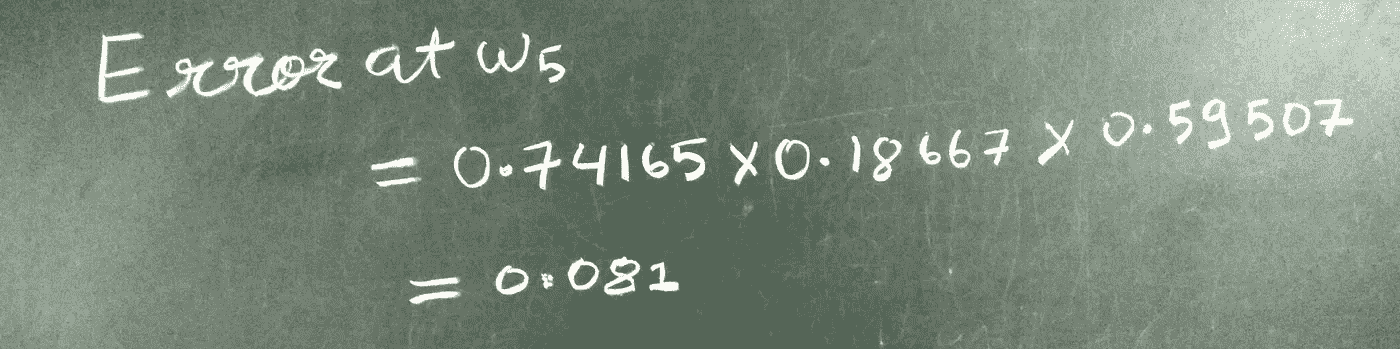 Error at w5
= 0.74165 X 0.18667 X 0.59507
= 0.081